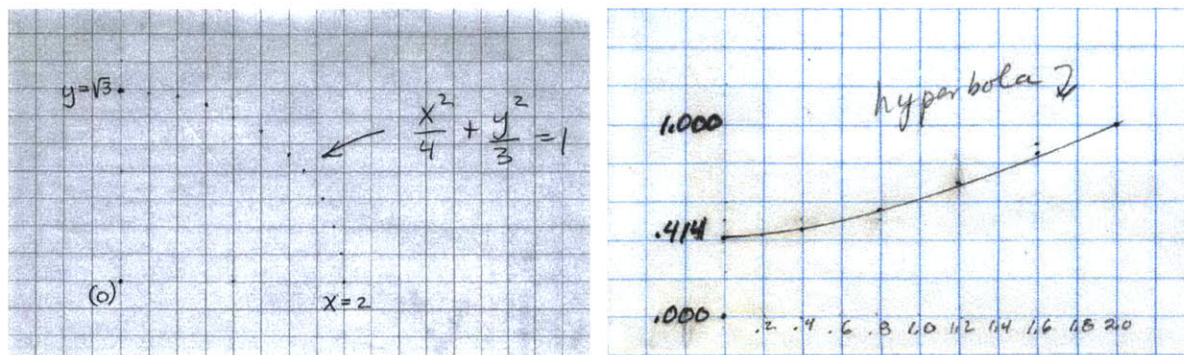 y=√3
x²/4 + y²/3 = 1
(0)
x=2
hyperbola
1.000
.414
.000
.2 .4 .6 .8 1.0 1.2 1.4 1.6 1.8 2.0